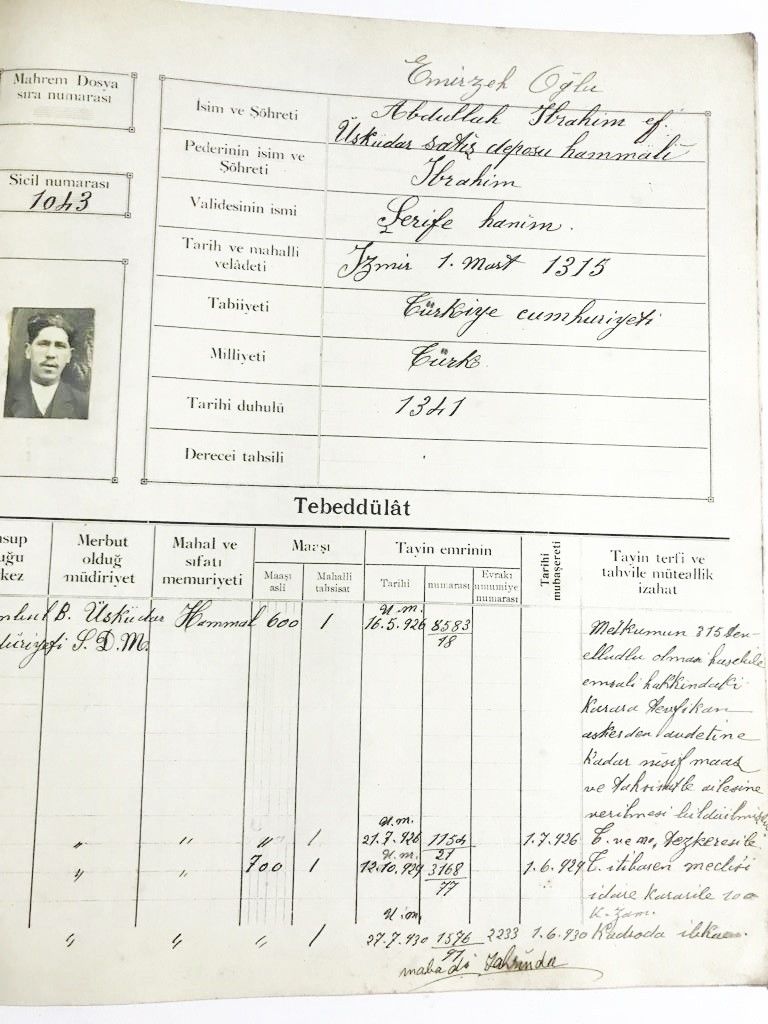 Emirzeh Oğlu
Mahrem Dosya
sıra numarası
Sicil numarası
1043
İsim ve Şöhreti Abdullah İbrahim ef.
Üsküdar satış deposu hammalı
Pederinin isim ve
Şöhreti İbrahim
Validesinin ismi Şerife hanım.
Tarih ve mahalli
velâdeti İzmir 1. Mart 1315
Tabiiyeti Türkiye cumhuriyeti
Milliyeti Türk
Tarihi duhulü 1341
Derecei tahsili
Tebeddülât
Merbut
olduğ
müdiriyet
Mahal ve
sıfatı
memuriyeti
Maaşı
Maaşı
asli
Mahalli
tahsisat
Tayin emrinin
Tarihi
numarası
Evrakı
umumiye
numarası
Tarihi
mubaşereti
Tayin terfi ve
tahvile müteallik
izahat
B. Üsküdar Hammal 600 1 U.m. 16.5.926 8583
18
S. D. M.
olması
emsali hakkındaki
karara tevfikan
askerden avdetine
kadar nısıf maaş
ve ailesine
verilmesi
" " " 1 U.m. 21.7.926 1154
21 1.7.926 T. ve no, tezkeresile
" " 700 1 U.m. 12.10.929 3168
77 1.6.929 T. itibaren meclisi
idare kararile 100
K. Zam.
" " " 1 U.m. 27.7.930 1576 2233 1.6.930 Kadroda